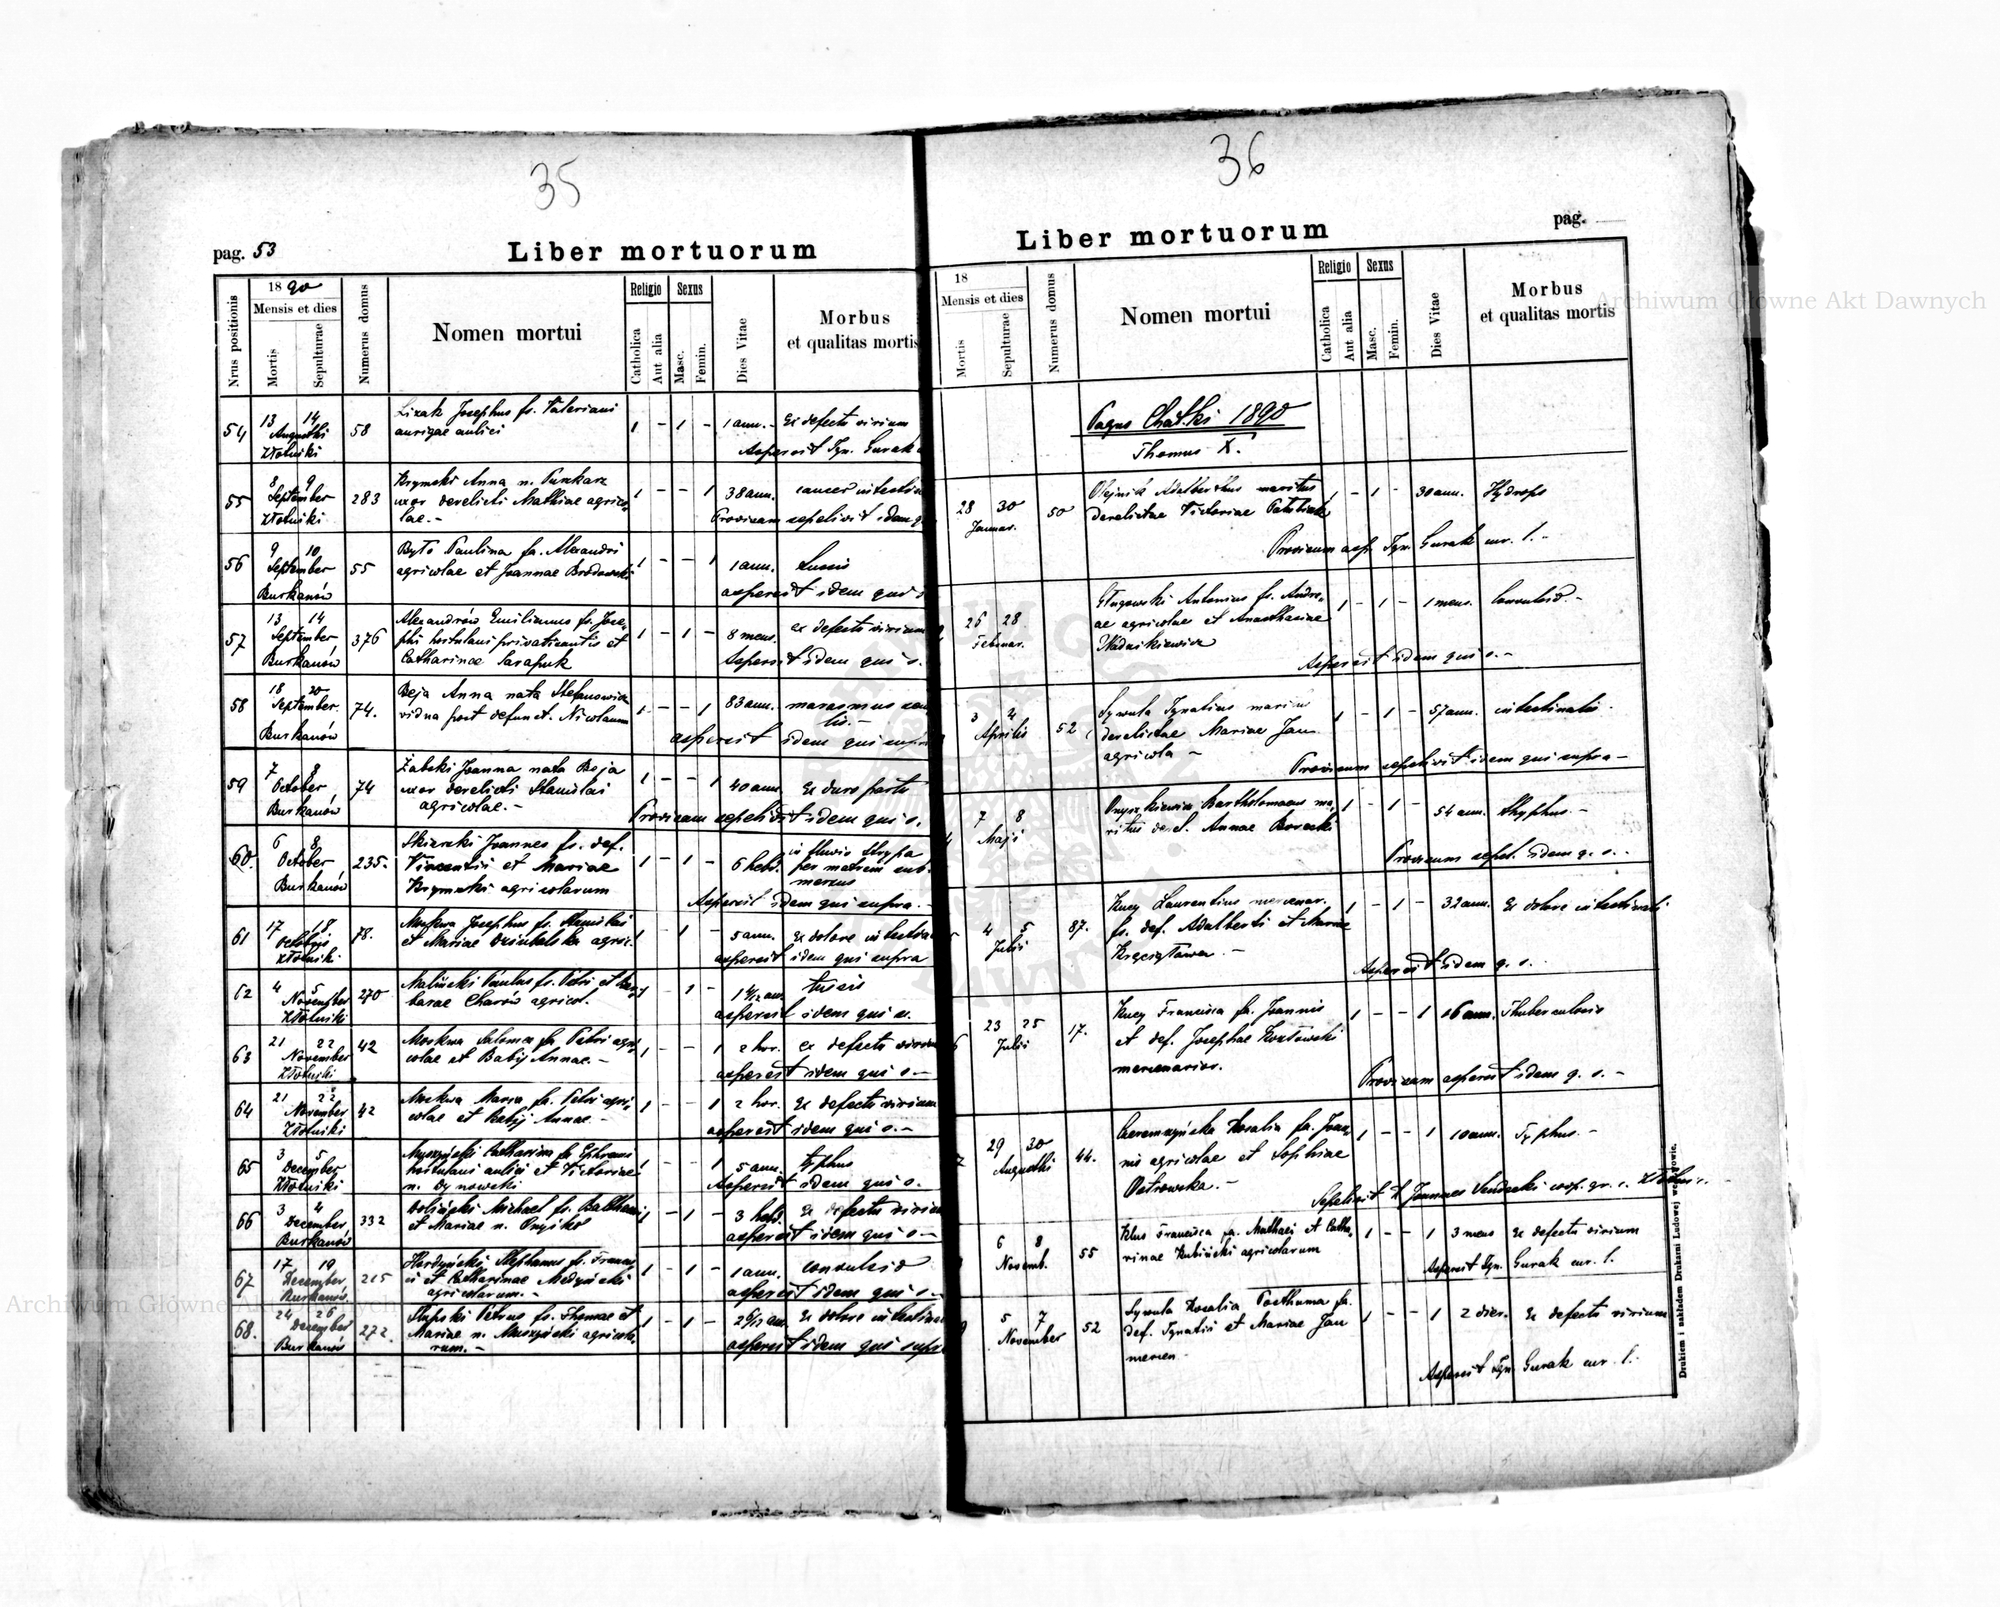 35
pag. 53
Liber mortuorum
Nrus positionis
1890
Mensis et dies
Mortis
Sepulturae
Numerus domus
Nomen mortui
Religio
Catholica
Aut alia
Sexus
Masc.
Femin.
Dies Vitae
Morbus
et qualitas mortis
54 13 14 58 Lizak Josephus fs. Valeriani 1 - 1 - 1 ann. - Ex defectu virium
Augusti aurigae aulici
Złotniki Asperсit Ign. Gurak
55 8 9 283 Krymski Anna n. Puszkarz 1 - - 1 38 ann. cancer intestin
September uxor derelicti Mathiae agrico-
Złotniki lae. - Provisam sepelivit idem q
56 9 10 55 Było Paulina fa. Alexandri 1 - - 1 1 ann. tussis
September agricolae et Joannae Brodowski
Burkanów aspersit idem qui s
57 13 14 376 Alexandrów Emilianus fs. Jose- 1 - 1 - 8 mens. ex defectu virium
September phi hortulani privatizantis et
Burkanów Catharinae Sarapuk Aspersit idem qui s.
58 18 20 74. Beja Anna nata Stefanowicz 1 - - 1 83 ann. marasmus sen
September vidua post defunct. Nicolaum lis. -
Burkanów aspersit idem qui supra
59 7 8 74 Żabski Joanna nata Beja 1 - - 1 40 ann. Ex duro partu
October uxor derelicti Stanislai
Burkanów agricolae. - Provisam sepelivit idem qui s.
60. 6 8 235. Skierski Joannes fs. def. 1 - 1 - 6 hebd. in fluvio Strypa
October Vincentii et Mariae per matrem sub-
Burkanów Krymski agricolarum mersus
Aspersit idem qui supra. -
61 17 18 78. Moskwa Josephus fs. Stanislai 1 - 1 - 5 ann. Ex dolore intestin
Octobris et Mariae agric.
Złotniki aspersit idem qui supra
62 4 5 270 Maliński Paulus fs. Petri et Bar- 1 - 1 - tussis
November barae agricol.
Złotniki aspersit idem qui s.
63 21 22 42 Moskwa Salomea fa. Petri agri- 1 - - 1 2 hor. ex defectu virium
November colae et Babij Annae. -
Złotniki aspersit idem qui s. -
64 21 22 42 Moskwa Maria fa. Petri agri- 1 - - 1 2 hor. Ex defectu virium
November colae et Babij Annae. -
Złotniki aspersit idem qui s. -
65 3 5 Muszyński Catharina fa. Ephremi 1 - - 1 5 ann. typhus
December hortulani aulici et Victoriae
Złotniki n. Dynowski Aspersit idem qui s.
66 3 4 332 Doliński Michael fs. 1 - 1 - 3 hebd. Ex defectu virium
December et Mariae n. Onyśko
Burkanów aspersit idem qui s. -
67 17 19 215 Stephanus fs. Francis- 1 - 1 - 1 ann. convulsio
December ci et Catharinae Medyński
Burkanów agricolarum. - aspersit idem qui s. -
68. 24 26 272. Słupski Petrus fs. Thomae et 1 - 1 - Ex dolore intestin
December Mariae n. Muszyński agricola-
Burkanów rum. - aspersit idem qui supra
36
Liber mortuorum
pag.
18
Mensis et dies
Mortis
Sepulturae
Numerus domus
Nomen mortui
Religio
Catholica
Aut alia
Sexus
Masc.
Femin.
Dies Vitae
Morbus
et qualitas mortis
Pagus Chatki 1890
Thomus X.
28 30 50 Olejnik Adalbertus maritus 1 - 1 - 30 ann. Hydrops
Januar. derelictae Victoriae
Provisum asp. Ign. Gurak cur. l. -
26 28 Głogowski Antonius fs. Andre- 1 - 1 - 1 mens. Convulsio. -
Februar. ae agricolae et Anastasiae
Aspersit idem qui s. -
3 4 52 Sywula Ignatius maritus 1 - 1 - 57 ann. intestinalis.
Aprilis derelictae Mariae Jan
agricola - Provisum sepelivit idem qui supra -
7 8 Onyszkiewicz Bartholomaeus ma- 1 - 1 - 54 ann. thyphus. -
Maji ritus derel. Annae Borecki
Provisum sepel. idem q. s. -
4 5 87. Kucy Laurentius mercenar. 1 - 1 - 32 ann. Ex dolore intestinali.
Julii fs. def. Adalberti et Mariae
Aspersit idem q. s.
23 25 17. Kucy Francisca fa. Joannis 1 - - 1 16 ann. Thuberculosis
Julii et def. Josephae Kozłowski
mercenarior. Provisam aspersit idem q. s. -
29 30 44. Czeremszyńska Rosalia fa. Joan- 1 - - 1 10 ann. Typhus. -
Augusti nis agricolae et Sophiae
Ostrowska. - Sepelivit Joannes coop. gr. c. Złotn.
6 8 55 Klus Francisca fa. Mathaei et Catha- 1 - - 1 3 mens Ex defectu virium
Novemb. rinae Kubiński agricolarum
Aspersit Ign. Gurak cur. l.
5 7 52 Sywula Rosalia Posthuma fa. 1 - - 1 2 dier. Ex defectu virium
November def. Ignatii et Mariae Jan
mercen. Aspersit Ign. Gurak cur. l.
Drukiem i nakładem Drukarni Ludowej we Lwowie.
Archiwum Główne Akt Dawnych
Archiwum Główne Akt Dawnych